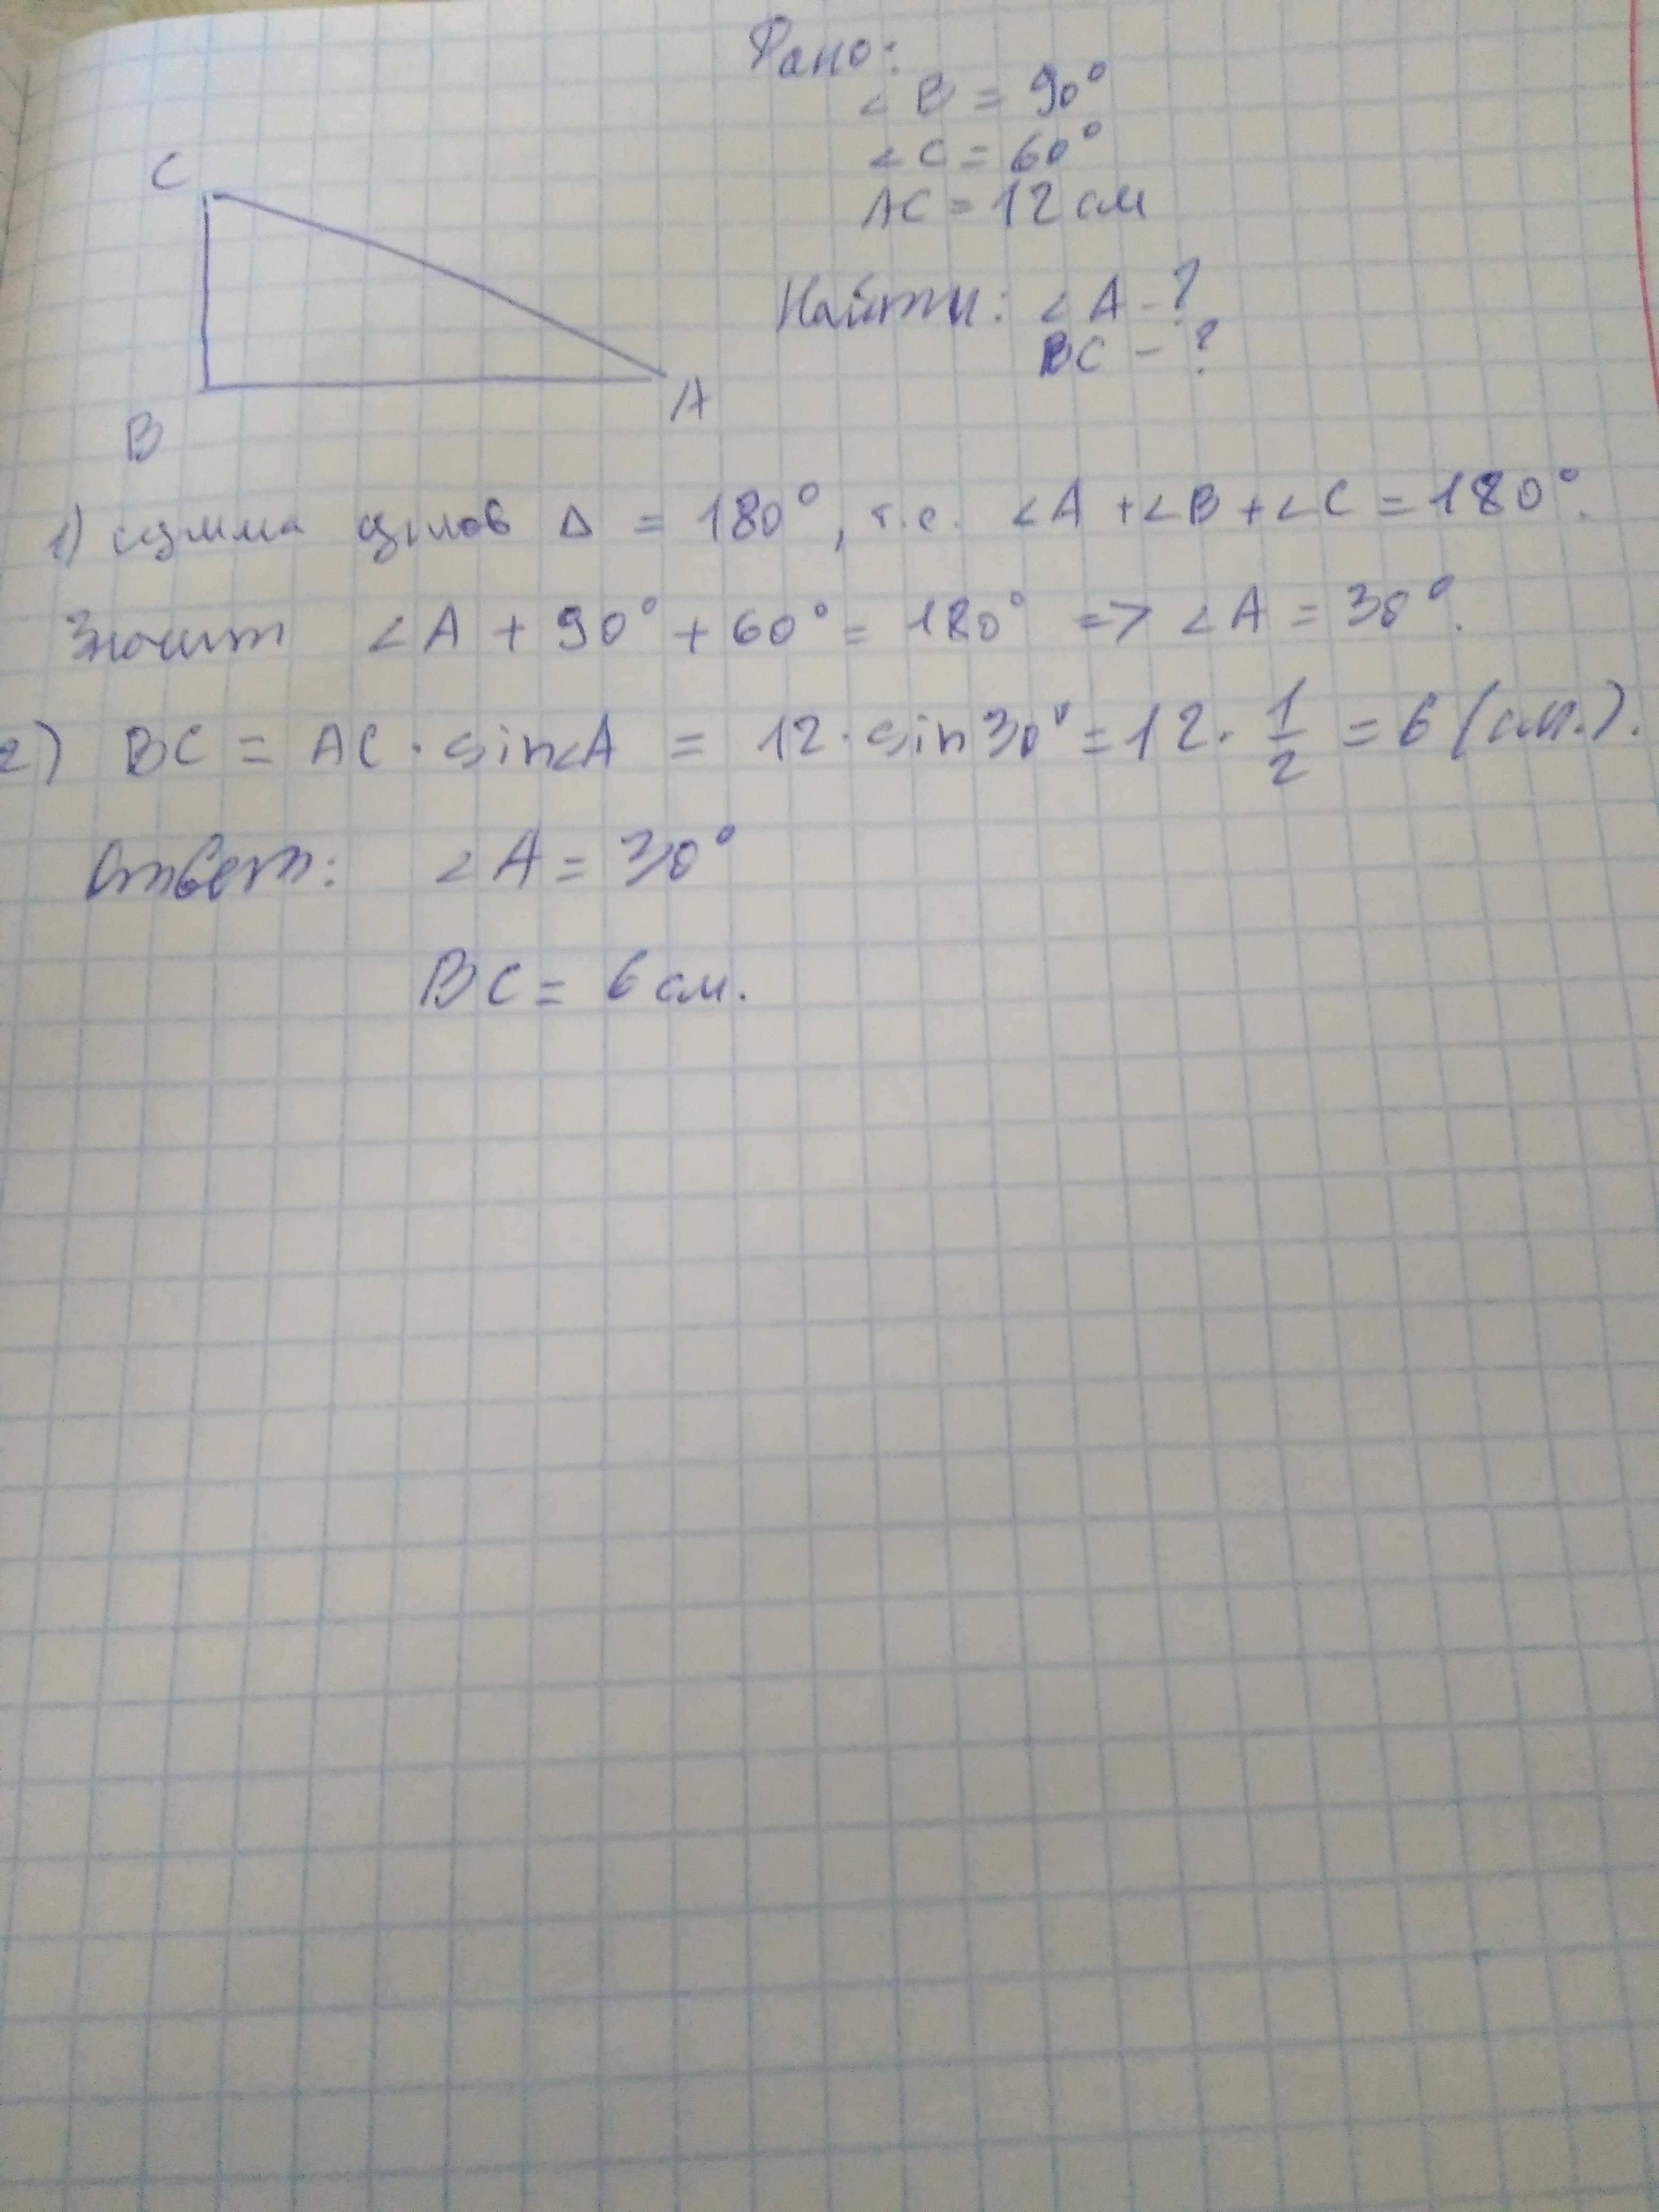 Дано:
∠B = 90°
∠C = 60°
AC = 12 см
Найти: ∠A - ?
BC - ?
C
B
A
1) сумма углов Δ = 180°, т.е. ∠A + ∠B + ∠C = 180°.
Значит ∠A + 90° + 60° = 180° => ∠A = 30°.
2) BC = AC · sin∠A = 12 · sin30° = 12 · 1/2 = 6 (см.).
Ответ: ∠A = 30°
BC = 6 см.